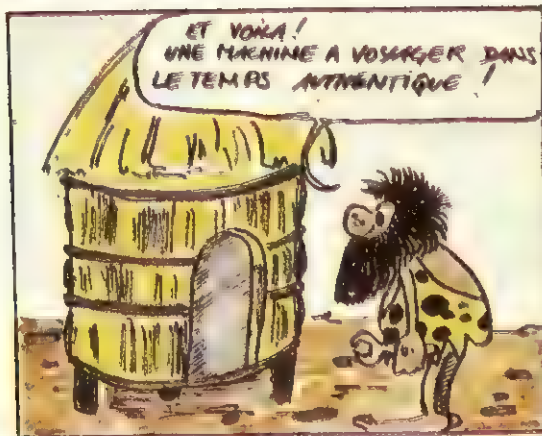 ET VOILA !
UNE MACHINE A VOYAGER DANS
LE TEMPS AUTHENTIQUE !